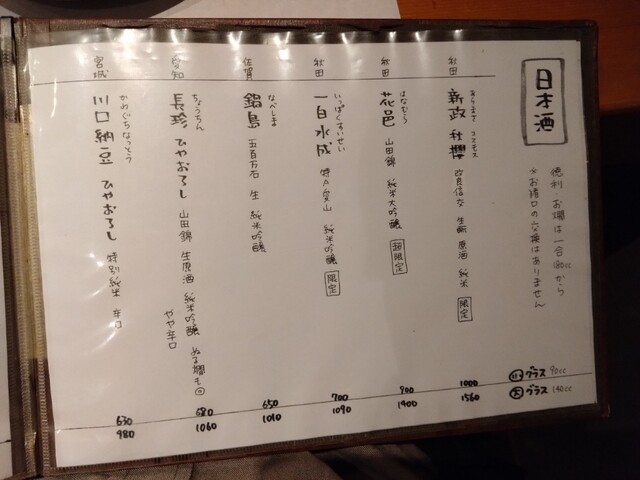 日本酒
徳利・お燗は一合180ccから
*お猪口の交換はありません
小 グラス 90cc
大 グラス 140cc
秋田
あらまさ コスモス
新政 秋櫻 改良信交 生酛 原酒 純米 限定
1000
1560
秋田
はなむら
花邑 山田錦 純米大吟醸 超限定
900
1400
秋田
いっぱくすいせい
一白水成 特A愛山 純米吟醸 限定
700
1090
佐賀
なべしま
鍋島 五百万石 生 純米吟醸
650
1010
愛知
ちょうちん
長珍 ひやおろし 山田錦 生原酒 純米吟醸 ぬる燗も◎
やや辛口
680
1060
宮城
かわぐちなっとう
川口納豆 ひやおろし 特別純米 辛口
630
980